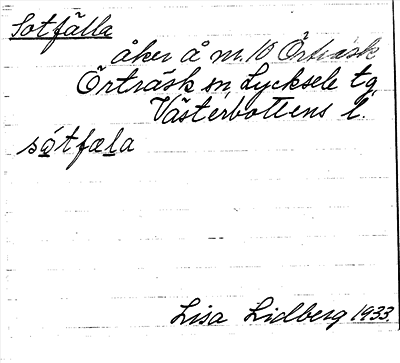 Sotfälla
åker å nr. 10 Örträsk
Örträsk sn, Lycksele tg,
Västerbottens l.
såtfæla
Lisa Lidberg 1933.